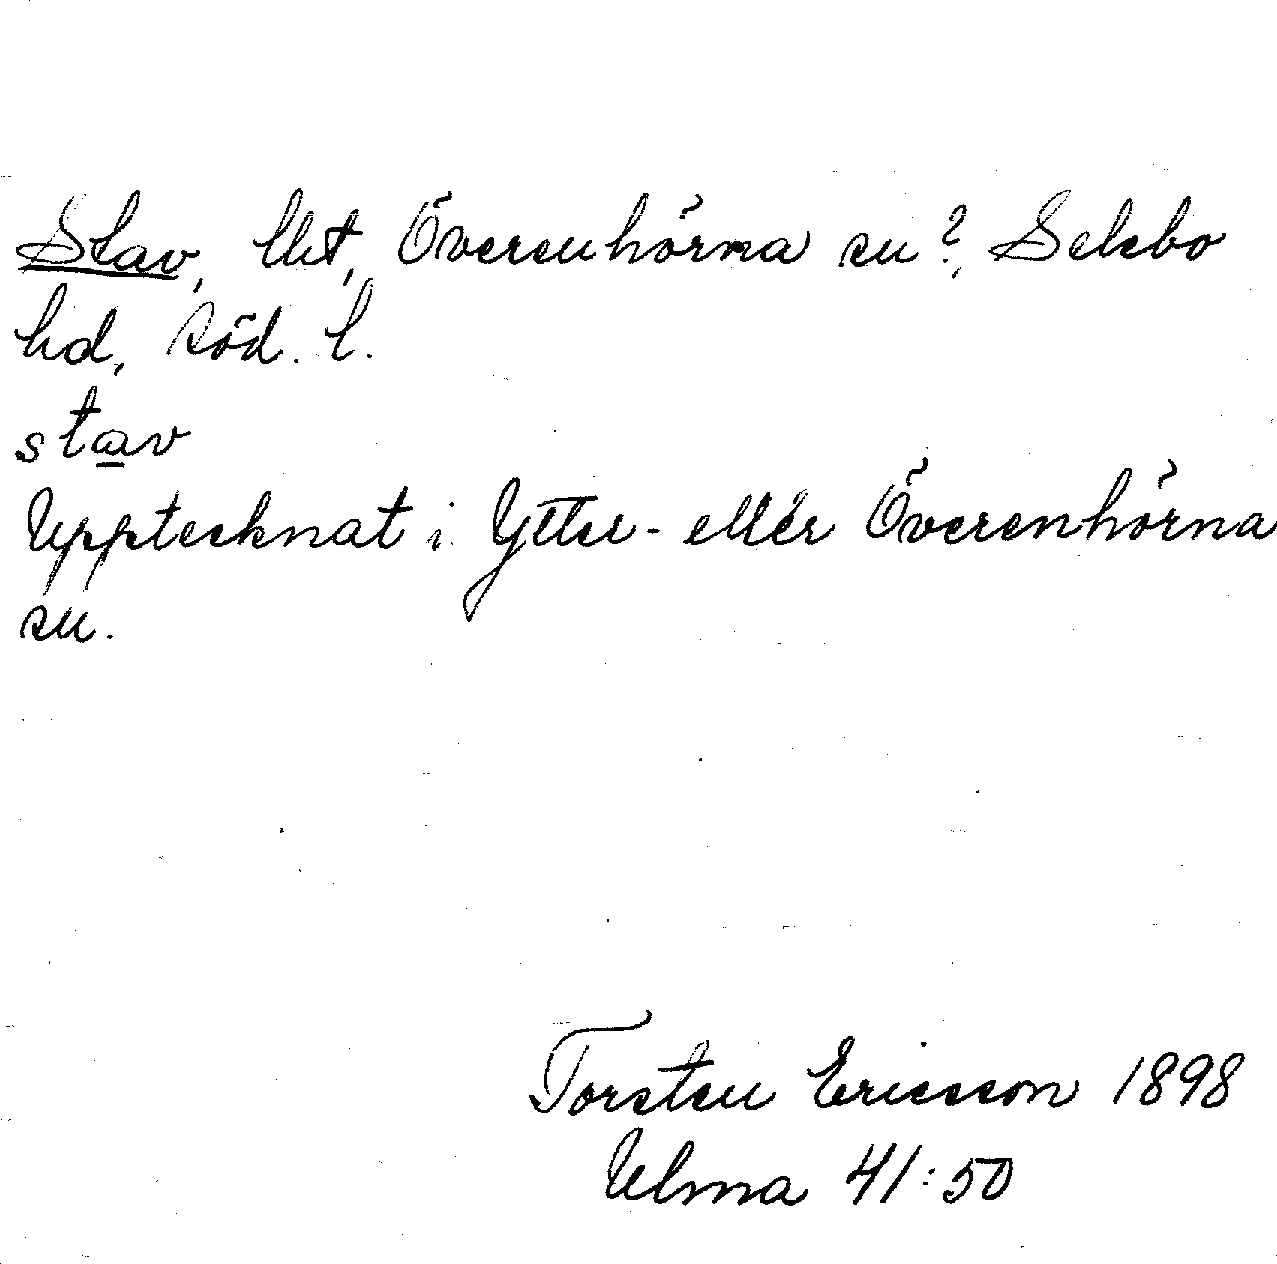 Stav, lht, Överenhörna sn?, Selebo
hd, Söd. l.
stav
Upptecknat i Ytter- eller Överenhörna
sn.
Torsten Ericsson 1898
Ulma 41:50